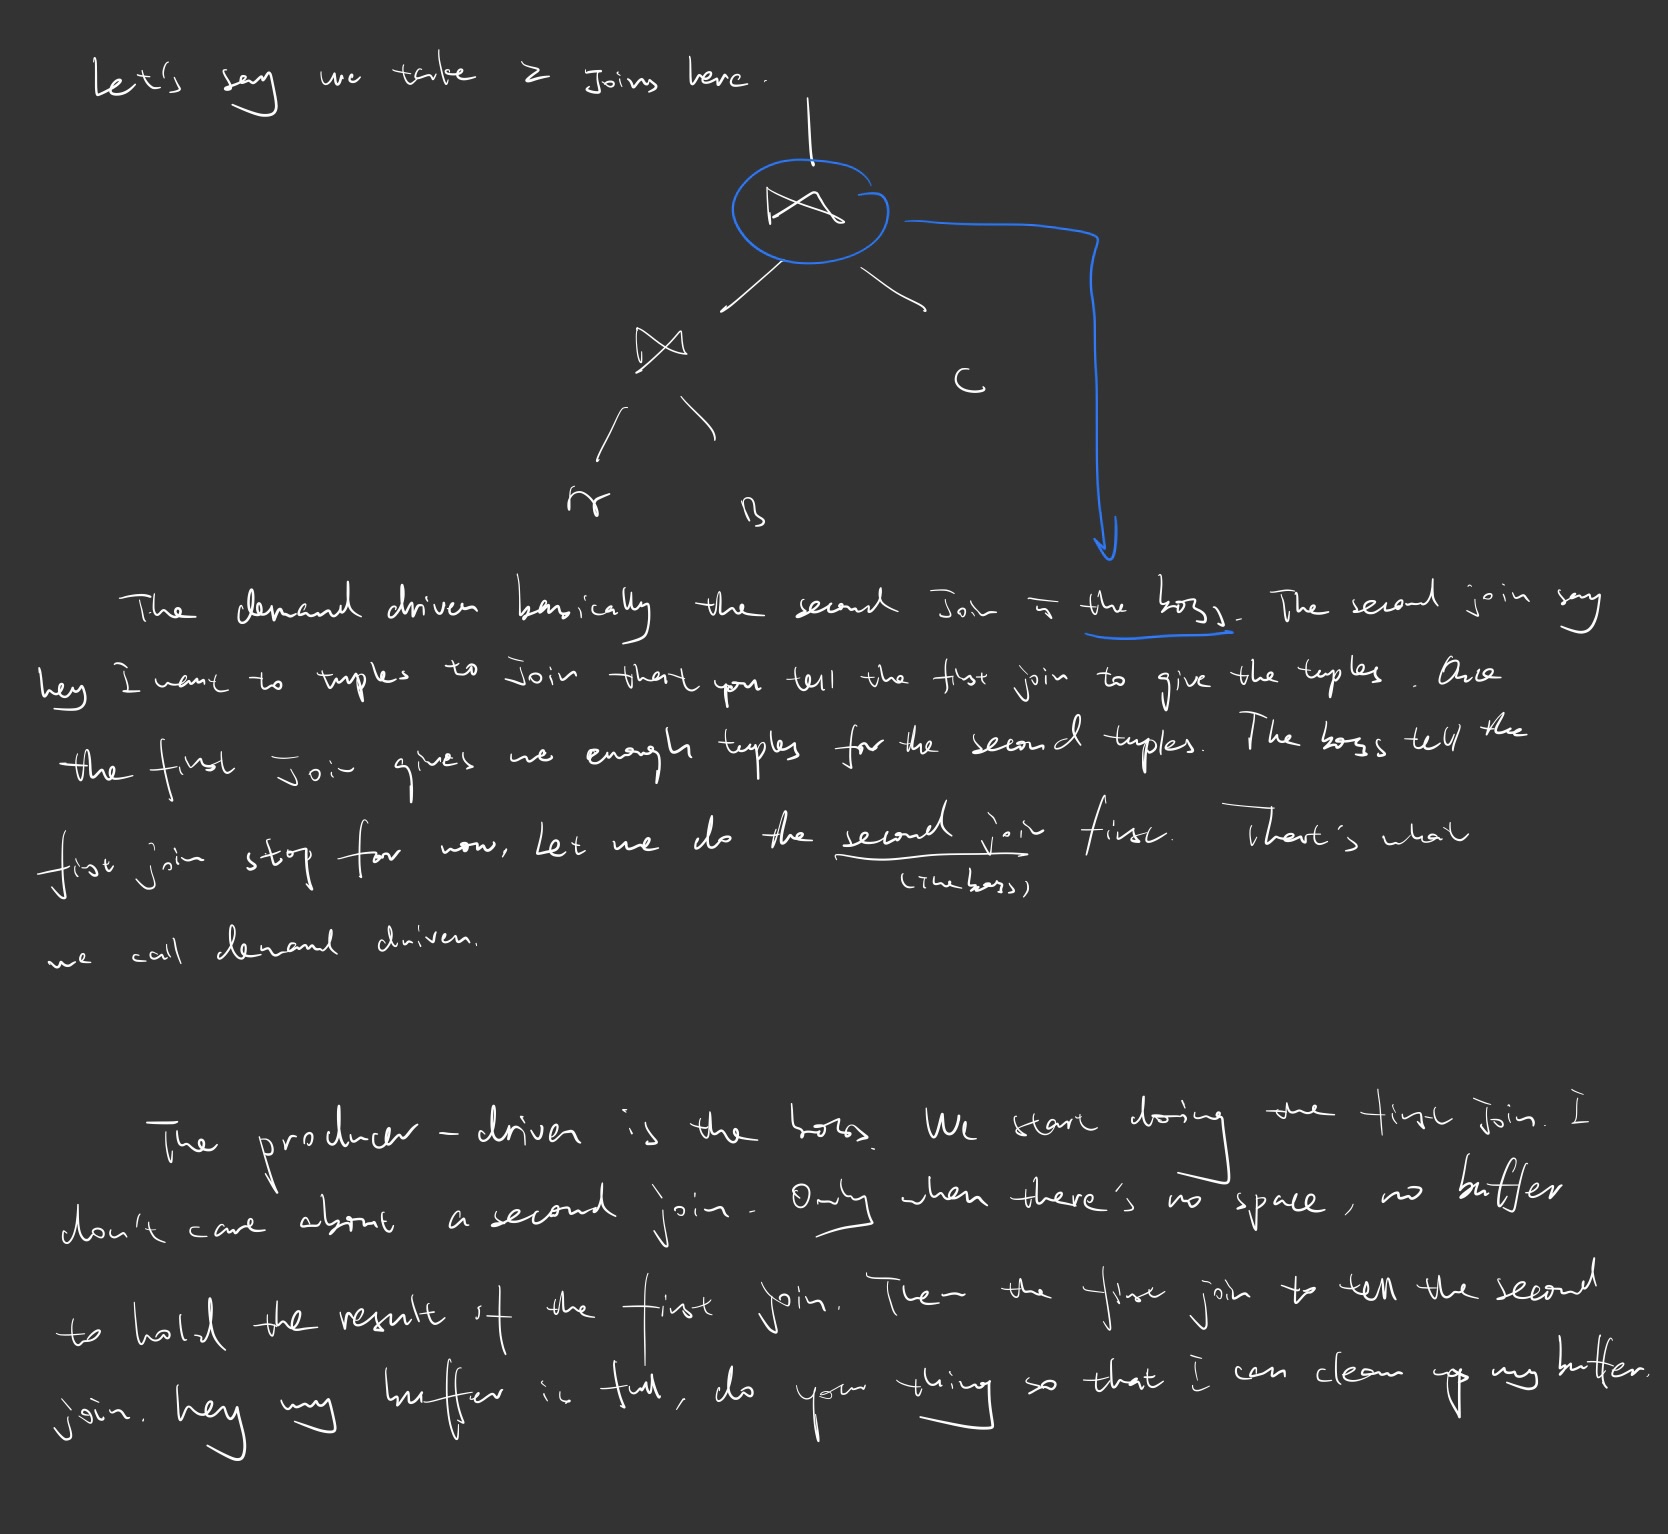 Let's say we take 2 Joins here.
⋈
⋈
C
A
B
The demand driven basically the second Join is the boss. The second join say
hey I want to tuples to Join that you tell the first join to give the tuples. Once
the first Join gives me enough tuples for the second tuples. The boss tell the
first join stop for now, Let me do the second join first. That's what
(The boss)
we call demand driven.
The producer-driven is the boss. We start doing the first Join. I
don't care about a second join. Only when there's no space, no buffer
to hold the result of the first join. Then the first join to tell the second
join. hey my buffer is full, do your thing so that I can clean up my buffer.